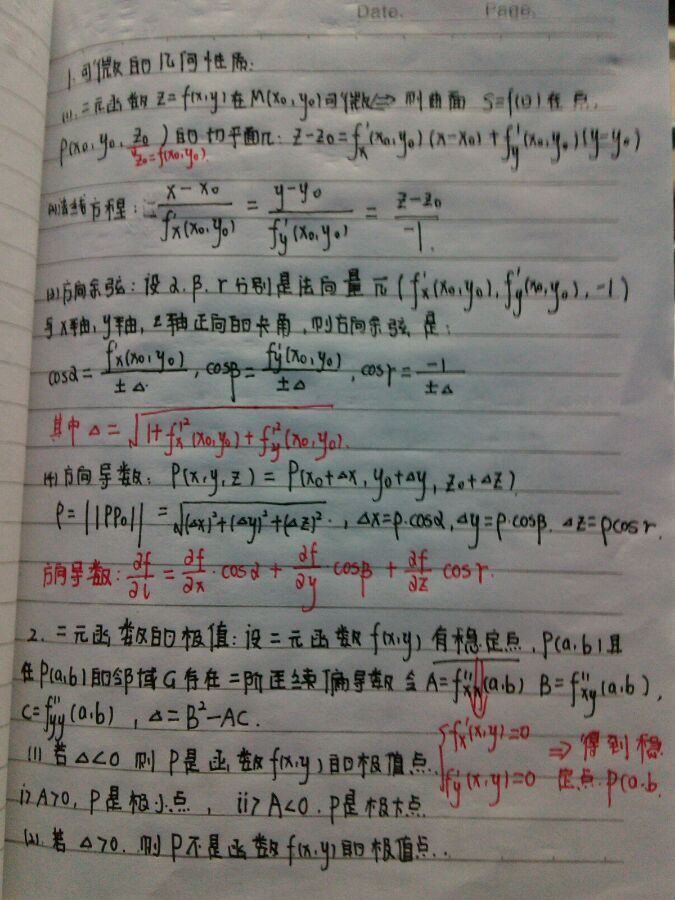 Date. Page.
1. 可微的几何性质:
(1). 二元函数 z=f(x,y) 在 M(x₀,y₀)可微⟺ 则曲面 S=f(·) 在点.
P(x₀, y₀, z₀) 的切平面π: z-z₀=f'x(x₀,y₀)(x-x₀)+f'y(x₀,y₀)(y-y₀)
z₀=f(x₀,y₀).
(2)法线方程: (x-x₀)/f'x(x₀,y₀) = (y-y₀)/f'y(x₀,y₀) = (z-z₀)/-1.
(3)方向余弦: 设 α.β.r 分别是法向量 n (f'x(x₀,y₀), f'y(x₀,y₀), -1)
与 x轴, y轴, z轴正向的夹角, 则方向余弦是:
cosα= f'x(x₀,y₀)/±△ , cosβ= f'y(x₀,y₀)/±△ , cosr= -1/±△
其中 △=√(1+f'x²(x₀,y₀)+f'y²(x₀,y₀)).
(4)方向导数: P(x,y,z) = P(x₀+△x, y₀+△y, z₀+△z)
ρ=||PP₀|| = √((△x)²+(△y)²+(△z)²) , △x=ρ·cosα, △y=ρ·cosβ. △z=ρcosr.
方向导数: ∂f/∂l = ∂f/∂x · cosα + ∂f/∂y cosβ + ∂f/∂z cosr.
2. 二元函数的极值: 设二元函数 f(x,y) 有稳定点, P(a,b)且
在P(a,b)的邻域G存在二阶连续偏导数 令 A=f''xx(a,b) B=f''xy(a,b),
C=f''yy(a,b) , △=B²-AC.
{f'x(x,y)=0
f'y(x,y)=0 ⇒ 得到稳
定点. P(a.b.
(1) 若△<0 则 P是函数f(x,y)的极值点.
i> A>0, P是极小点 , ii> A<0. P是极大点
(2). 若 △>0. 则P不是函数f(x.y)的极值点..